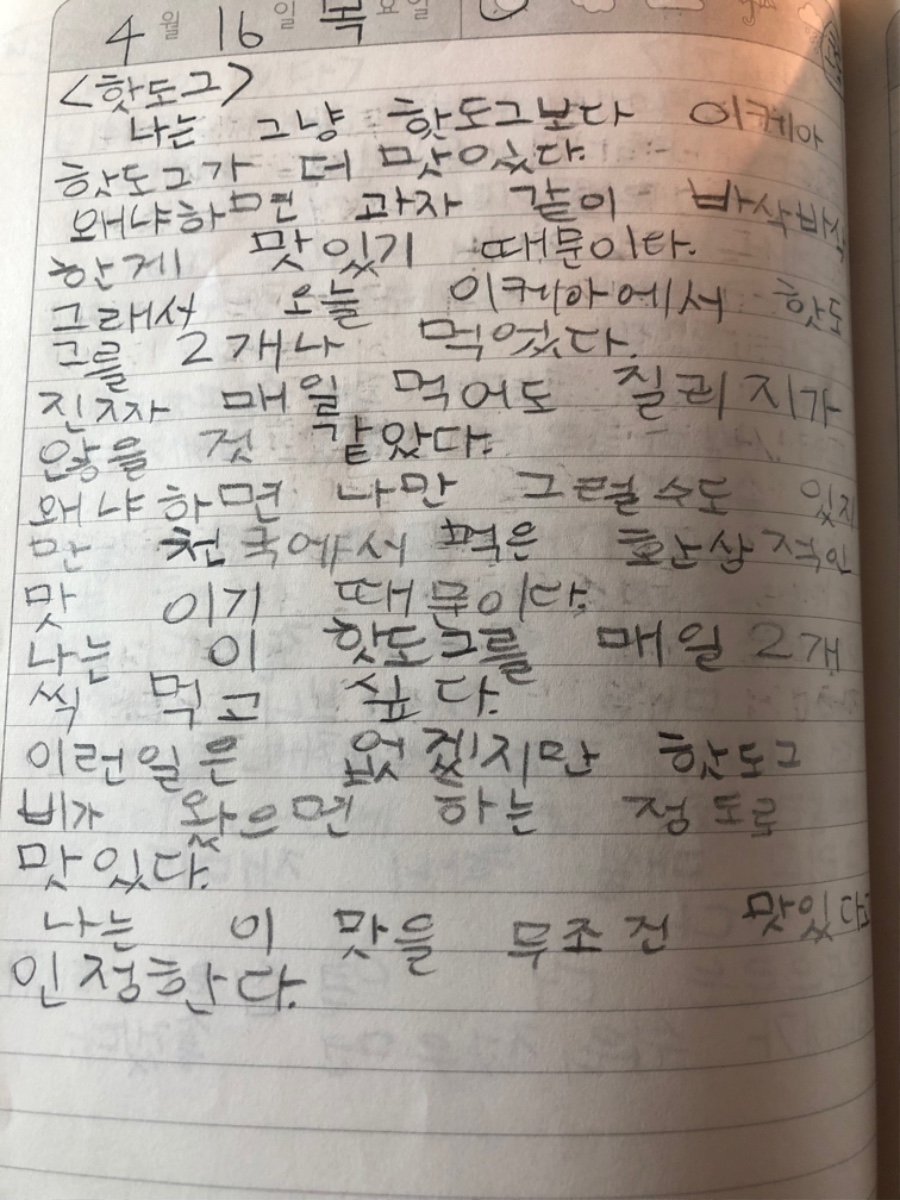 4월 16일 목요일
<핫도그>
나는 그냥 핫도그보다 이케아
핫도그가 더 맛있다.
왜냐하면 과자 같이 바삭바삭
한게 맛있기 때문이다.
그래서 오늘 이케아에서 핫도
그를 2개나 먹었다.
진짜 매일 먹어도 질리지가
않을 것 같았다.
왜냐하면 나만 그럴수도 있지
만 천국에서 먹은 환상적인
맛 이기 때문이다.
나는 이 핫도그를 매일 2개
씩 먹고 싶다.
이런일은 없겠지만 핫도그
비가 왔으면 하는 정도로
맛있다.
나는 이 맛을 무조건 맛있다고
인정한다.